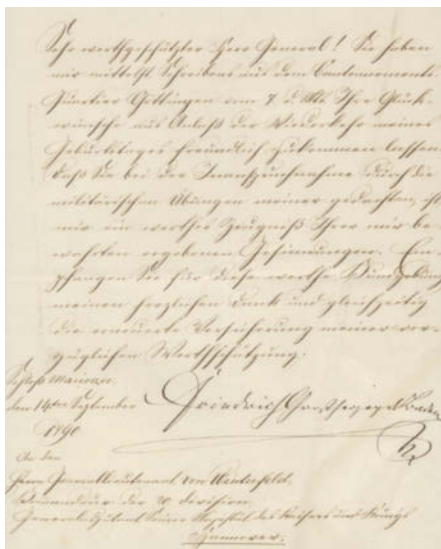 Sehr werthgeschätzter Herr General! Sie haben
mir mittelst Schreibens aus dem Cantonnements
Quartier Göttingen vom 7. d. Mts. Ihre Glück-
wünsche aus Anlaß der Wiederkehr meines
Geburtstages freundlich zukommen lassen.
Daß Sie bei der Inanspruchnahme durch die
militärischen Übungen meiner gedachten, ist
mir ein werthes Zeugniß Ihrer mir be-
wahrten ergebenen Gesinnungen. Em-
pfangen Sie für diese werthe Kundgebung
meinen herzlichen Dank und gleichzeitig
die erneuerte Versicherung meiner vor-
züglichen Werthschätzung.
Schloß Mainau
den 14ten September
1890
Friedrich Großherzog von Baden
An den
Herrn Generallieutenant von
Commandeur der Division
Generaladjutant Seiner Majestät des Kaisers und Königs
Hannover.